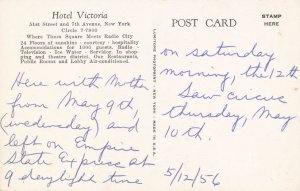 Hotel Victoria
51st Street and 7th Avenue, New York
Circle 7-7800
Where Times Square Meets Radio City
24 Floors of sunshine - courtesy - hospitality
Accommodations for 1000 guests. Radio -
Television - Ice Water - Servidor. In shop-
ping and theatre district. Our Restaurants,
Public Rooms and Lobby Air-conditioned.
Here with Mother
from May 9th,
(wednesday) and
left on Empire
State Express at
9 daylight time
POST CARD
STAMP
HERE
on saturday
morning, the 12th
Saw circus
thursday, May
10th.
5/12/56